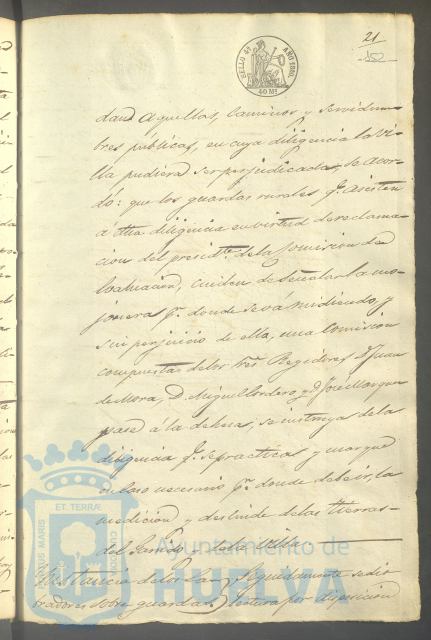 21
152
SELLO 4º AÑO 1860.
40 Ms.
dan Aquellas, Caminos y servidum-
bres públicas, en cuya diligencia la Vi-
lla pudiera ser perjudicada, se acor-
dó: que los guardas rurales qe. asisten
a dha diligencia en virtud de reclama-
cion del presidte. de la Comision de
Evaluacion, cuiden de señalar la mo-
jonera pr. donde se vá midiendo, y
sin perjuicio de ella, una Comision
compuesta de los tres Regidores D. Juan
de Mora, D. Miguel Cordero y D. José Marquez
pase á la dehesa, se instruya de la
diligencia qe. se practica y marque
en caso necesario pr. donde debe ir la
medicion y deslinde de las tierras
del Partido y de la Villa.
Instancia de los La- Seguidamente se dio
bradores sobre guardas lectura por disposicion
PORTUS MARIS ET TERRÆ CUSTODIA
Ayuntamiento de
HUELVA